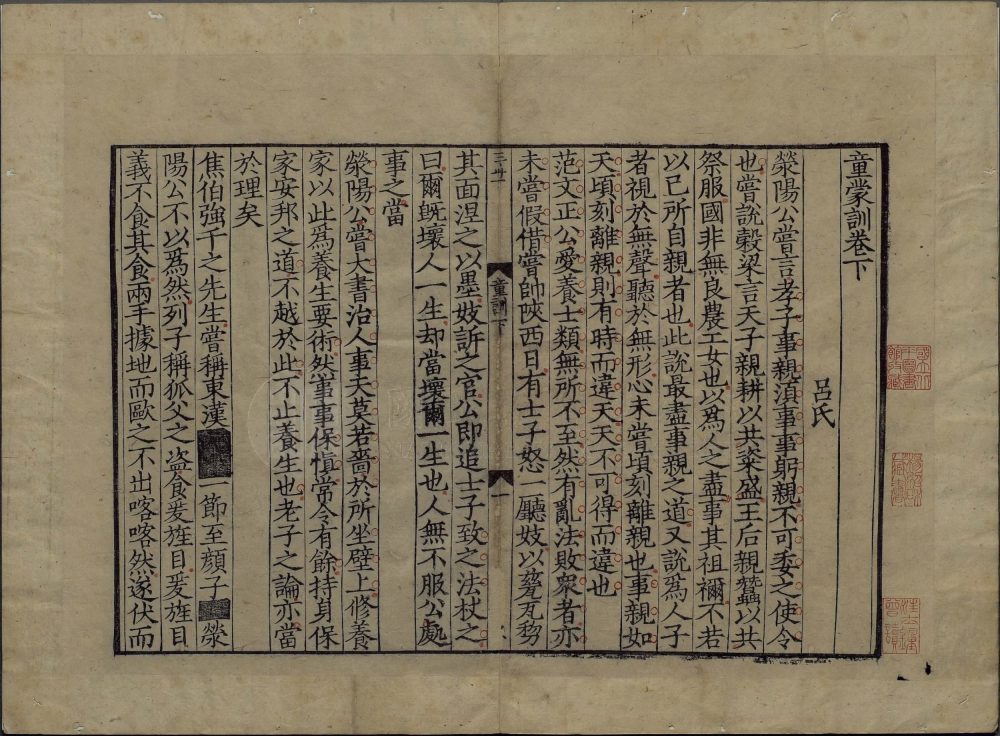 童蒙訓卷下
呂氏
滎陽公嘗言孝子事親湏事事躬親不可委之使令
也嘗說榖梁言天子親耕以共粢盛王后親蠶以共
祭服國非無良農工女也以為人之盡事其祖禰不若
以己所自親者也此說最盡事親之道又說為人子
者視於無聲聽於無形心未嘗頃刻離親也事親如
天頃刻離親則有時而違天天不可得而違也
范文正公愛養士類無所不至然有亂法敗衆者亦
未嘗假借嘗帥陝西日有士子怒一廳妓以甆瓦
童訓下
一
其面涅之以墨妓訴之官公即追士子致之法杖之
曰爾旣壞人一生却當壞爾一生也人無不服公處
事之當
滎陽公嘗大書治人事天莫若嗇於所坐壁上修養
家以此為養生要術然事事保愼常令有餘持身保
家安邦之道不越於此不止養生也老子之論亦當
於理矣
焦伯強千之先生嘗稱東漢一節至顏子滎
陽公不以為然列子稱狐父之盗食爰旌目爰旌目
義不食其食兩手據地而歐之不出喀喀然遂伏而